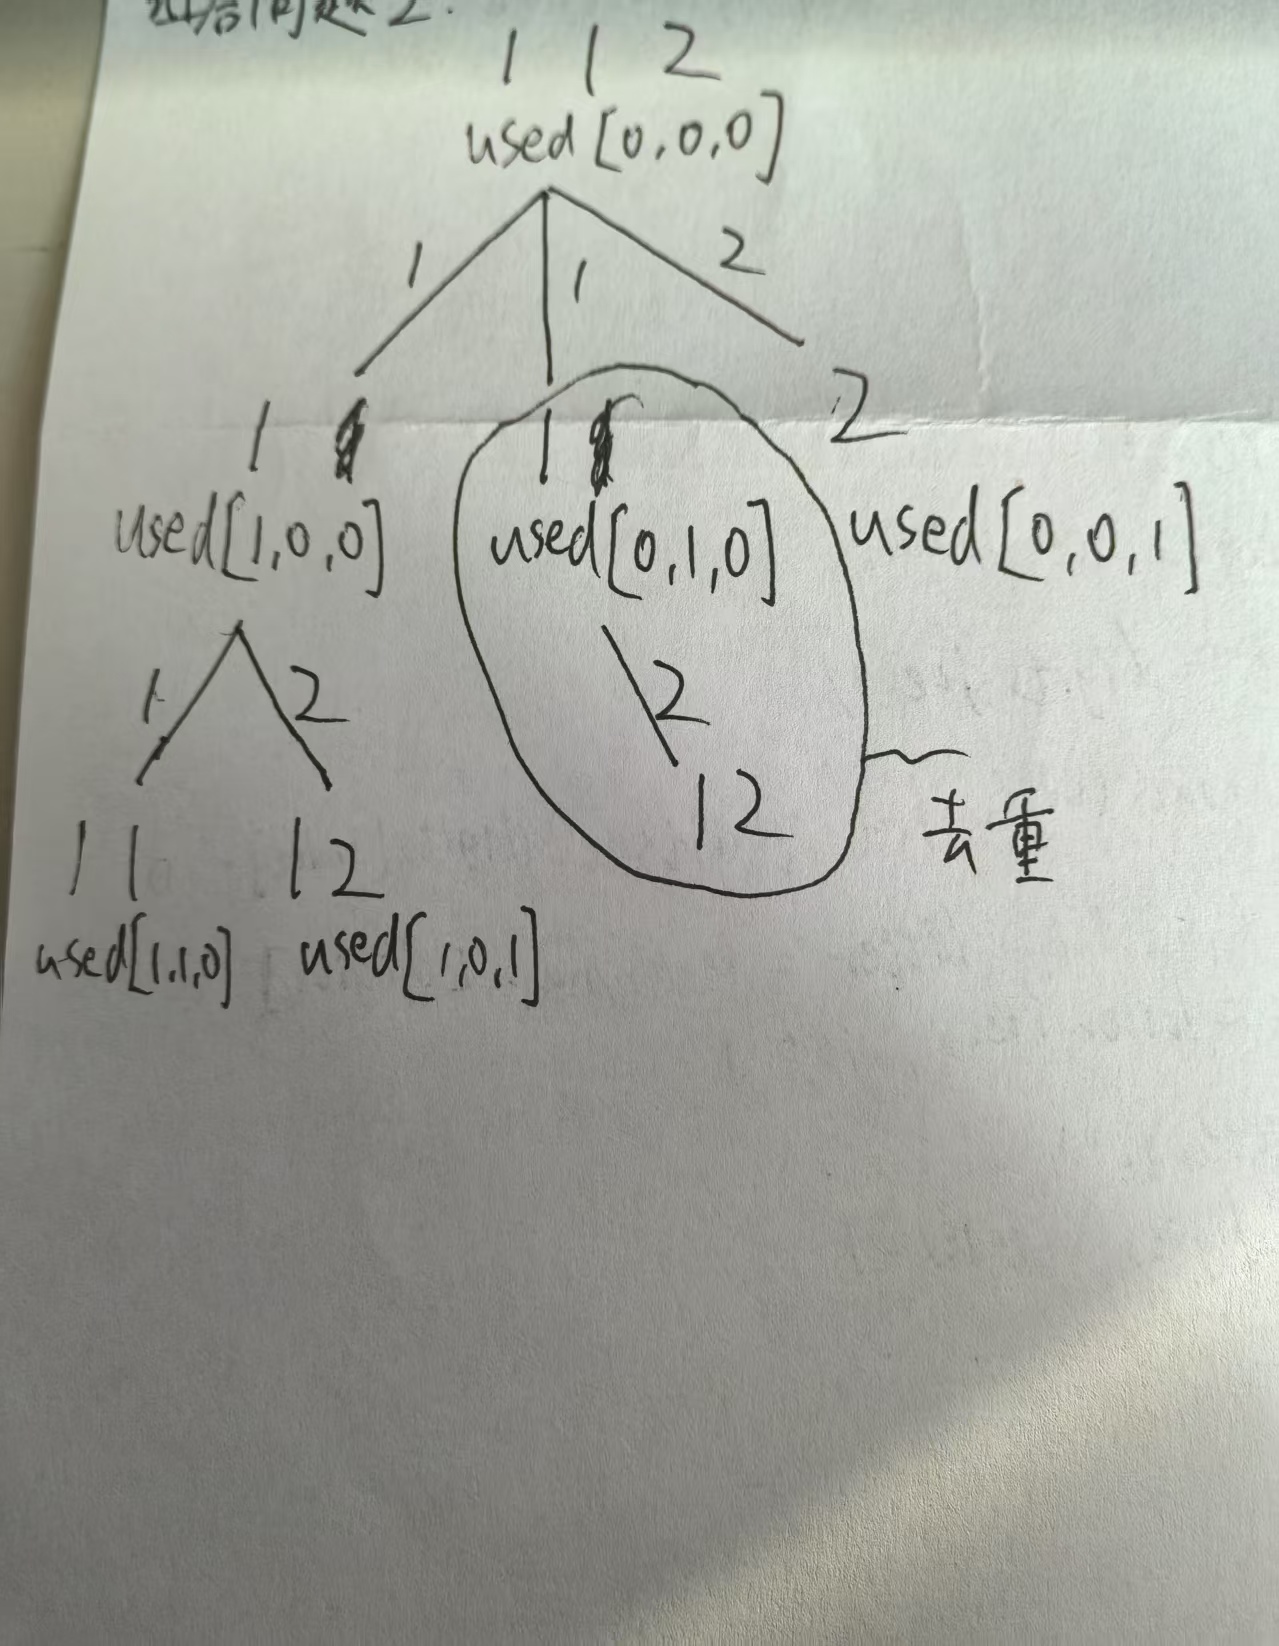 组合问题2.
1 1 2
used[0,0,0]
1 1 2
1 1 2
used[1,0,0] used[0,1,0] used[0,0,1]
1 2 2
1 1 1 2 1 2
去重
used[1,1,0] used[1,0,1]